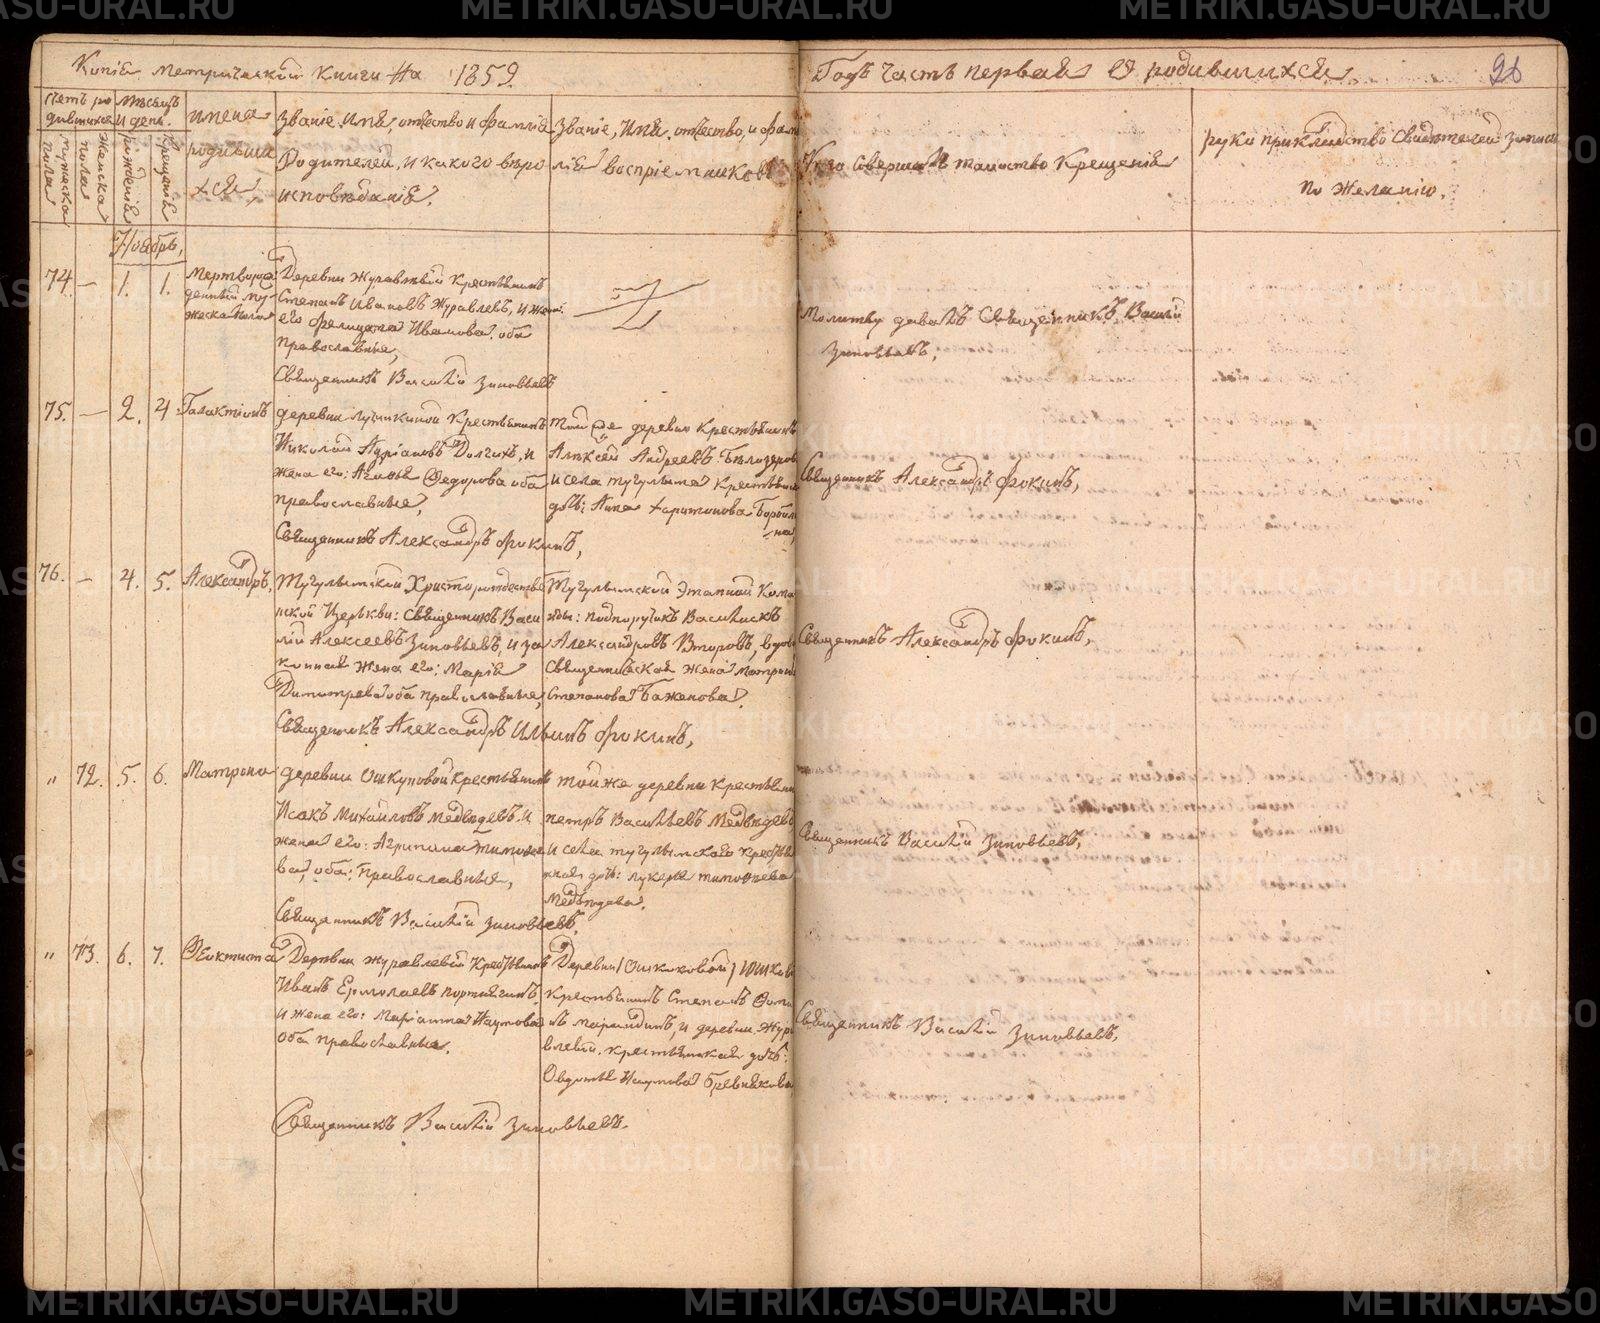 METRIKI.GASO-URAL.RU
Копія метрической книги На 1859.
Годъ часть первая О родившихся
Счетъ ро
дившихся
мужеска
пола
женска
пола
Мѣсяцъ
и день.
рожденія
крещенія
имена
родивши
хся
Званіе, имя, отчество и фамилія
Родителей, и какого вѣро
исповѣданія.
Званіе, Имя, отчество, и фами
лія воспріемниковъ
Кто совершалъ таинство Крещенія
рукоприкладство Свидѣтелей записи
по желанію.
Ноябрь,
74. — 1. 1.
Мертворож
денный му-
жеска пола
Деревни Журавлевой Крестьянинъ
Степанъ Ивановъ Журавлевъ, и жена
его Фелицата Иванова. оба
православные,
Священникъ Василій Зиновьевъ
Молитву давалъ Священникъ Василій
Зиновьевъ,
75. — 2. 4.
Галактіонъ
деревни лучинкиной Крестьянинъ
Николай Адріановъ Долгихъ, и
жена его: Агафья Федорова оба
православные,
Священникъ Александръ Фокинъ,
той же деревни Крестьянинъ
Алексѣй Андреевъ Бѣлозеровъ
и села тугулыма Крестьянск
дочь: Анна Харитонова
Священникъ Александръ Фокинъ,
76. — 4. 5.
Александръ,
Тугулымской Христорождестве
нской Церкви: Священникъ Васи
лій Алексеевъ Зиновьевъ, и за
конная жена его: Марія
Димитрева оба православные,
Священникъ Александръ Ильинъ Фокинъ,
Тугулымской Этапной Кома
нды: подпоручикъ Василискъ
Александровъ Второвъ, вдова
Священническая жена Матрона
Степанова Баженова.
Священникъ Александръ Фокинъ,
" 72. 5. 6.
Матрона
деревни Ошкуковой Крестьянинъ
Исакъ Михайловъ Медведевъ. и
жена его: Агрипина тимофее
ва, оба: Православные,
Священникъ Василій Зиновьевъ.
тойже деревни Крестьянин
петръ Васильевъ Медвѣдевъ
и села тугулымскаго Крестья
нская дочь: лукерья тимофеева
Медвѣдева.
Священникъ Василій Зиновьевъ,
" 73. 6. 7.
Феоктиста
Деревни журавлевой Крестьянинъ
Иванъ Ермолаевъ портнягинъ.
и жена его: Маріанна Наумова
Оба православные.
Священникъ Василій Зиновьевъ.
Крестьянинъ Степанъ
и деревни Жура
влевой. крестьянская дочь:
Овдотья Наумова Бревнякова
Священникъ Василій Зиновьевъ,